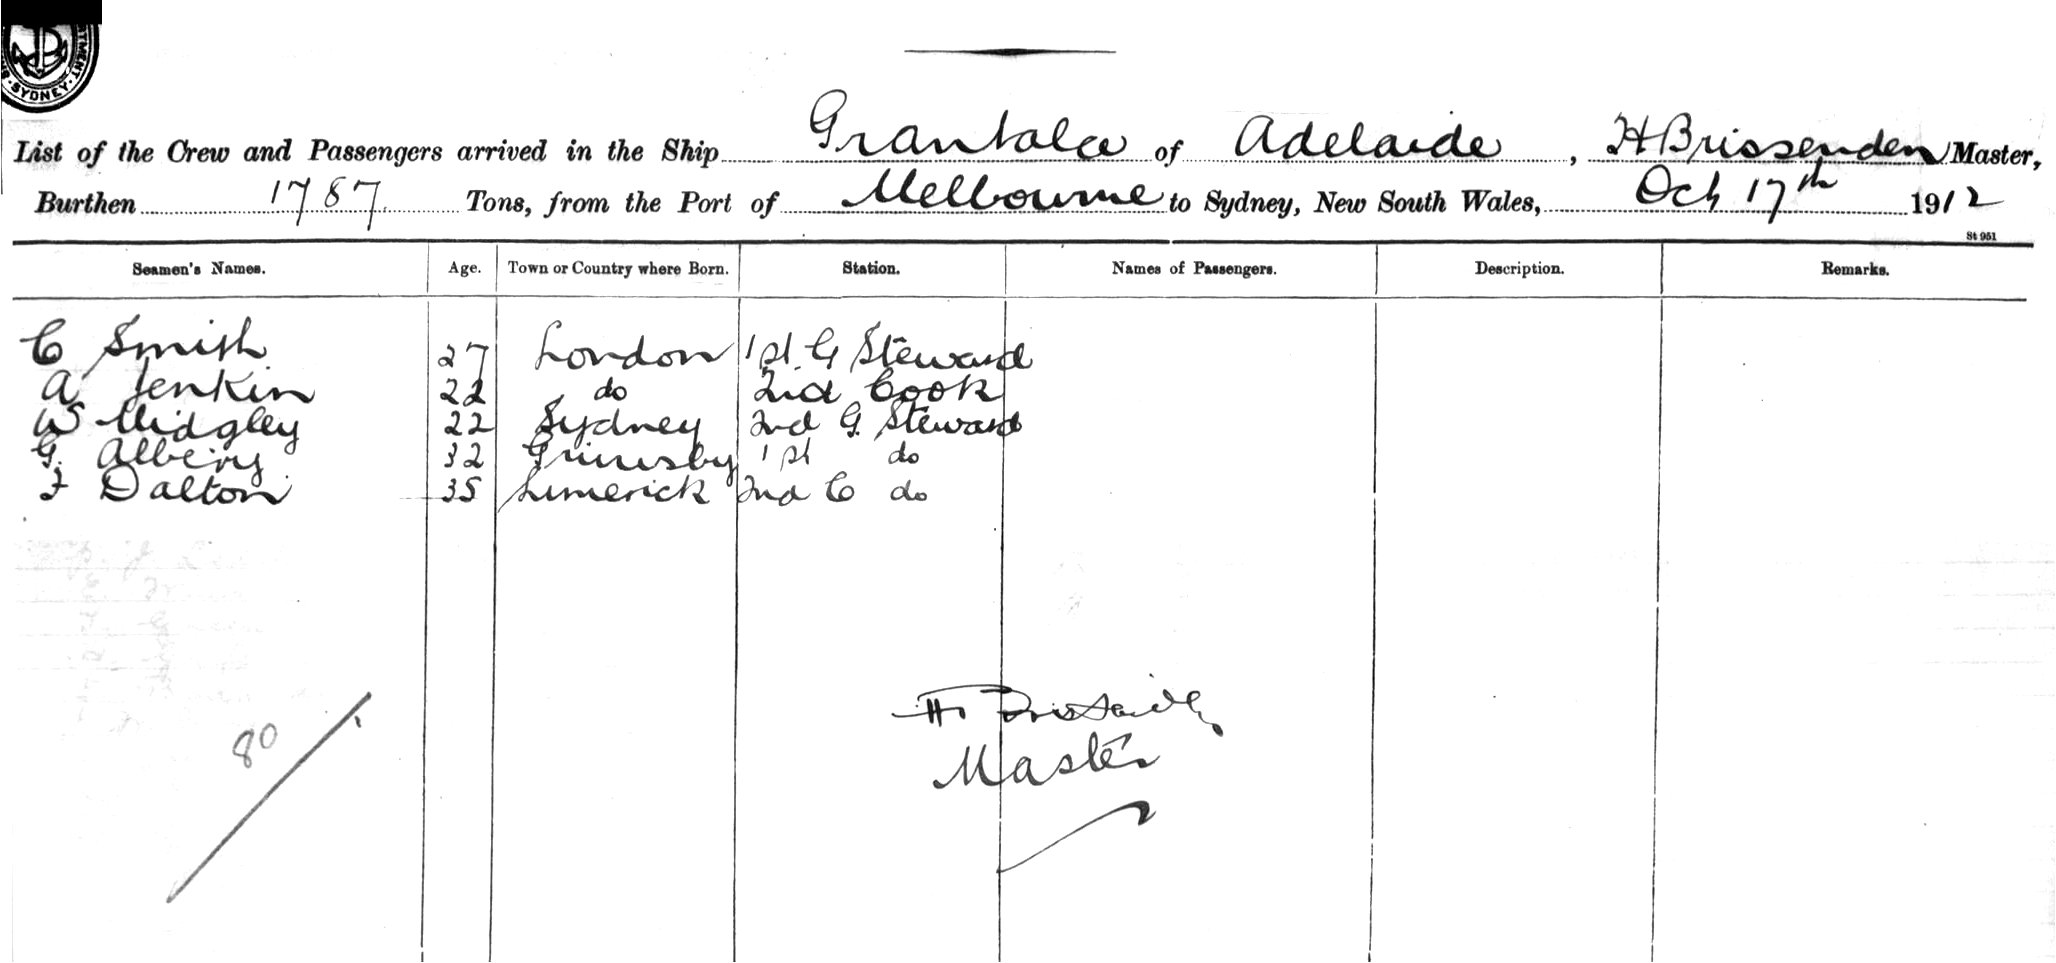 SYDNEY
List of the Crew and Passengers arrived in the Ship Grantala of Adelaide, H Brissenden Master,
Burthen 1787 Tons, from the Port of Melbourne to Sydney, New South Wales, Oct 17th 1912
St 951
Seamen's Names. Age. Town or Country where Born. Station. Names of Passengers. Description. Remarks.
C Smith 27 London 1st G Steward
A Jenkin 22 do 2nd Cook
W Midgley 22 Sydney 2nd G. Steward
G. Albery 32 Grimsby 1st do
F Dalton 35 Limerick 2nd C do
H
80
Master